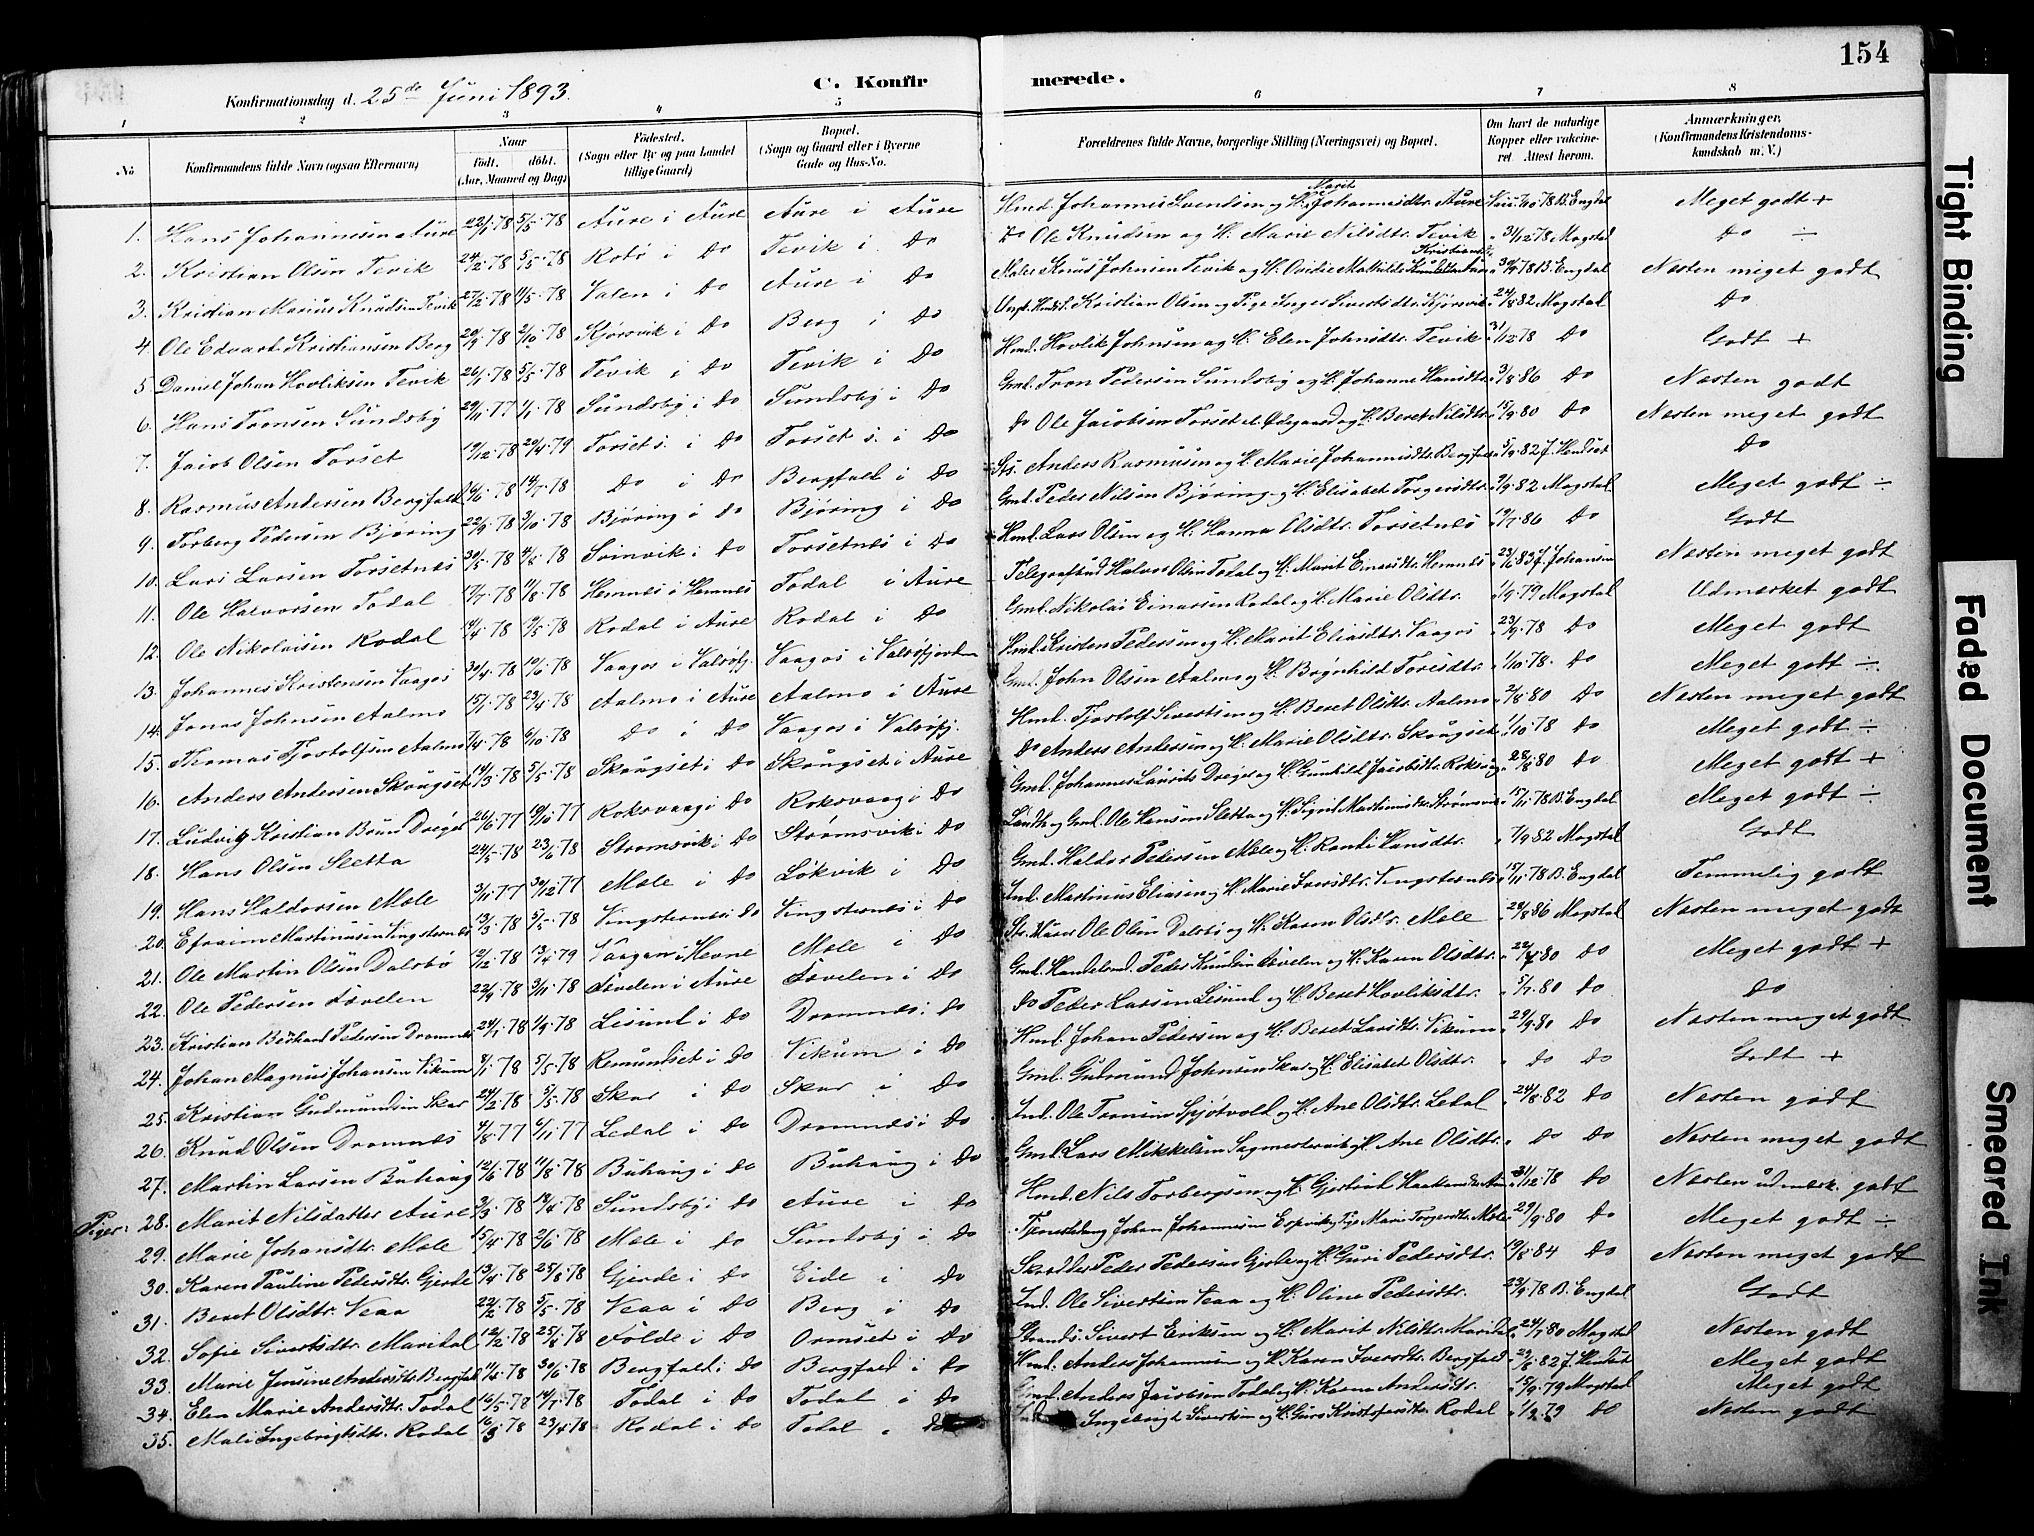 154
C. Konfirmerede.
Konfirmationsdag d. 25de Juni 1893.
1 2 3 4 5 6 7 8
No
Konfirmandens fulde Navn (ogsaa Efternavn)
Naar
født. døbt.
(Aar, Maaned og Dag)
Fødested.
(Sogn eller By og paa Landet
tillige Gaard)
Bopæl.
(Sogn og Gaard eller i Byerne
Gade og Hus-No.
Forældrenes fulde Navne, borgerlige Stilling (Næringsvei) og Bopæl.
Om havt de naturlige
Kopper eller vakcine-
ret. Attest herom.
Anmærkninger.
(Konfirmandens Kristendoms-
kundskab m. V.)
1. Hans Johannesen Aure 22/1 78 5/5 78 Aure i Aure Aure i Aure Hmd. Johannes Svendsen og H. Marit Johannesdtr. Aure 78 B. Engdal Meget godt +
2. Kristian Olsen Tevik 24/2 78 5/5 78 Rotø i do Tevik i do Do Ole Knudsen og H. Marie Nilsdtr. Tevik 31/12 78 Mogstad do ÷
3. Kristian Marius Knudsen Tevik 27/2 78 11/5 78 Valen i do Aure i do Maler Knut Johnsen Tevik og H. Ovidie Mathilde Kristiansdtr. 30/9 78 B. Engdal Næsten meget godt
4. Ole Edvart Kristiansen Berg 20/9 78 2/10 78 Kjørsvik i do Berg i do Ungk. Kristian Olsen og Pige Inger Sivertsdtr. Kjørsvik 24/8 82 Mogstad Do
5. Daniel Johan Hovliksen Tevik 26/1 78 5/5 78 Tevik i do Tevik i do Hmd. Hovlik Johnsen og H. Elen Johnsdtr. Tevik 31/12 78 do Godt +
6. Hans Tronsen Sundsby 29/11 77 1/1 78 Sundsby i do Sundsby i do Gmd. Tron Pedersen Sundsby og H. Johanne Hansdtr. 3/8 86 do Næsten godt
7. Jacob Olsen Torset 19/12 78 20/4 79 Torset s. i do Torset s. i do do Ole Jacobsen Torset el. Ødegaard og H. Beret Nilsdtr. 15/9 80 do Næsten meget godt
8. Rasmus Andersen Bergfald 16/6 78 14/7 78 do i do Bergfald i do Sts. Anders Rasmusen og H. Marie Johannesdtr. Bergfald 5/9 82 J. Hendset do
9. Torberg Pedersen Bjøring 22/9 78 3/10 78 Bjøring i do Bjøring i do Gmd. Peder Nilsen Bjøring og H. Elisabet Torgersdtr. 7/9 82 Mogstad Meget godt ÷
10. Lars Larsen Torsetnes 30/5 78 4/8 78 Svinvik i do Torsetnes i do Hmd. Lars Olsen og H. Hanna Olsdtr. Torsetnes 19/7 86 do Godt
11. Ole Halvorsen Todal 17/7 78 11/8 78 Hemnes i Hemnes Todal i Aure Telegrafbud Halvor Olsen Todal og H. Marit Einarsdtr. Hemnes 23/6 83 J. Johansen Næsten meget godt
12. Ole Nikolaisen Rodal 14/4 78 12/5 78 Rodal i Aure Rodal i do Gmd. Nikolai Einarsen Rodal og H. Marie Olsdtr. 1/9 79 Mogstad Udmærket godt
13. Johannes Kristensen Vaagos 30/4 78 10/6 78 Vaagos i Valsøfj. Vaagos i Valsøfjorden Hmd. Kristen Pedersen og H. Marit Eliasdtr. Vaagos 23/9 78 do Meget godt
14. Jonas Johnsen Aalmo 15/1 78 23/4 78 Aalmo i Aure Aalmo i Aure Gmd. John Olsen Aalmo og H. Brynhild Toresdtr. 1/10 78. do Meget godt ÷
15. Thomas Tjostolfsen Aalmo 7/4 78 6/10 78 do i do Vaagos i Valsøfj. Hmd. Tjostolf Sivertsen og H. Beret Olsdtr. Aalmo 2/8 80 do Næsten meget godt
16. Anders Andersen Skougset 14/3 78 5/5 78 Skougset i do Skougset i Aure do Anders Andersen og H. Marie Olsdtr. Skougset 1/10 78 do Meget godt ÷
17. Ludvig Kristian Brun Dreyer 26/6 77 10/10 77 Roksvaag i do Roksvaag i do Gmd. Johannes Laurits Dreyer og H. Gunhild Jacobsdtr. Roksvaag 28/8 80 do Meget godt +
18. Hans Olsen Sletta 24/5 78 23/6 78 Strømsvik i do Strømsvik i do Landh. og Gmd. Ole Hansen Sletta og H. Sigrid Martinusdtr. Strømsvik 15/11 78 B. Engdal Meget godt ÷
19. Hans Haldorsen Mole 3/11 77 30/12 77 Mole i do Løkvik i do Gmd. Haldor Pedersen Mole og H. Randi Hansdtr. 7/9 82 Mogstad Godt
20. Efraim Martinusen Vingsternes 13/3 78 5/5 78 Vingsternes i do Vingsternes i do Ind. Martinus Eliasen og H. Marie Iversdtr. Vingsternes 15/11 78 B. Engdal Temmelig godt
21. Ole Martin Olsen Dalsbø 12/12 78 13/4 79 Vaagan i Hevne Mole i do Sts. Murer Ole Olsen Dalsbø og H. Karen Olsdtr. Mole 28/8 86 Mogstad Næsten meget godt
22. Ole Pedersen Livelen 22/9 78 3/11 78 Livelen i Aure Livelen i do Gmd. Handelsmd. Peder Knudsen Livelen og H. Karen Olsdtr. 22/7 80 do Meget godt +
23. Kristian Pedersen Dromnes 24/7 78 1/9 78 Lesund i do Dromnes i do do Peder Larsen Lesund og H. Beret Hovliksdtr. 5/7 80 do do
24. Johan Magnus Johansen Vikum 8/1 78 5/5 78 Remundset i do Vikum i do Hmd. Johan Pedersen og H. Beret Larsdtr. Vikum 29/9 80 do Næsten meget godt
25. Kristian Gudmundsen Skar 24/2 78 5/5 78 Skar i do Skar i do Gmd. Gudmund Johnsen Skar og H. Elisabet Olsdtr. do do Godt +
26. Knud Olsen Dromnes 4/8 77 4/11 77 Ledal i do Dromnes i do Ind. Ole Tronsen Spjøtvold og H. Ane Olsdtr. Ledal 24/8 82 do Næsten godt
27. Martin Larsen Buhaug 12/6 78 11/8 78 Buhaug i do Buhaug i do Gmd. Lars Mikkelsen og H. Ane Olsdtr. do do Næsten meget godt
Piger: 28. Marit Nilsdatter Aure 3/3 78 14/4 78 Sundsby i do Aure i do Hmd. Nils Torbergsen og H. Gjertrud Haakonsdtr. Aure 31/12 78 do Næsten udmærk. godt
29. Marie Johansdtr. Mole 15/4 78 2/6 78 Mole i do Sundsby i do Tjenestedreng Johan Johannesen Espvik og Pige Marie Torgersdtr. Mole 29/9 80 do Meget godt ÷
30. Karen Pauline Pedersdtr. Gjerde 13/4 78 25/8 78 Gjerde i do Eide i do Skrædder Peder Pedersen Gjerde og H. Guri Pedersdtr. 19/8 84 do Næsten meget godt
31. Beret Olsdtr. Veaa 22/2 78 5/5 78 Veaa i do Berg i do Ind. Ole Sivertsen Veaa og H. Oline Pedersdtr. 23/9 78 B. Engdal Godt
32. Sofie Sivertsdtr. Maridal 12/2 78 25/8 78 Folde i do Ormset i do Strands. Sivert Eriksen og H. Marit Nilsdtr. Maridal 24/7 80 Mogstad Næsten godt
33. Marie Jensine Andersdtr. Bergfald 11/4 78 30/6 78 Bergfald i do Bergfald i do Hmd. Anders Johannesen og H. Karen Iversdtr. Bergfald 29/8 82 J. Hendset Meget godt
34. Elen Marie Andersdtr. Todal 16/5 78 14/7 78 Todal i do Todal i do Gmd. Anders Jacobsen Todal og H. Karen Andersdtr. 15/9 79 Mogstad Meget godt
35. Mali Ingebrigtsdtr. Rodal 16/3 78 23/4 78 Rodal i do Todal " do Ingebrigt Sivertsen og H. Guro Kristofersdtr. Rodal 1/9 79 do Næsten godt
Tight Binding
Faded Document
Smeared Ink